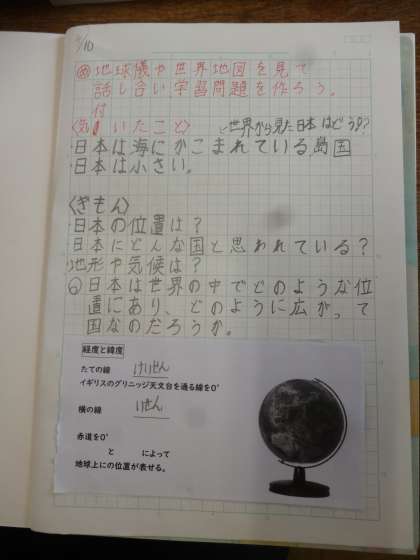 /10
め 地球儀や世界地図を見て
話し合い学習問題を作ろう。
〈気付いたこと〉 世界から見た日本はどう??
・日本は海にかこまれている島国
日本は小さい。
〈ぎもん〉
・日本の位置は?
日本にどんな国と思われている?
地形や気候は?
日本は世界の中でどのような位
置にあり、どのように広がって
国なのだろうか。
経度と緯度
たての線 けいせん
イギリスのグリニッジ天文台を通る線を0°
横の線 いせん
赤道を0°
と によって
地球上にの位置が表せる。